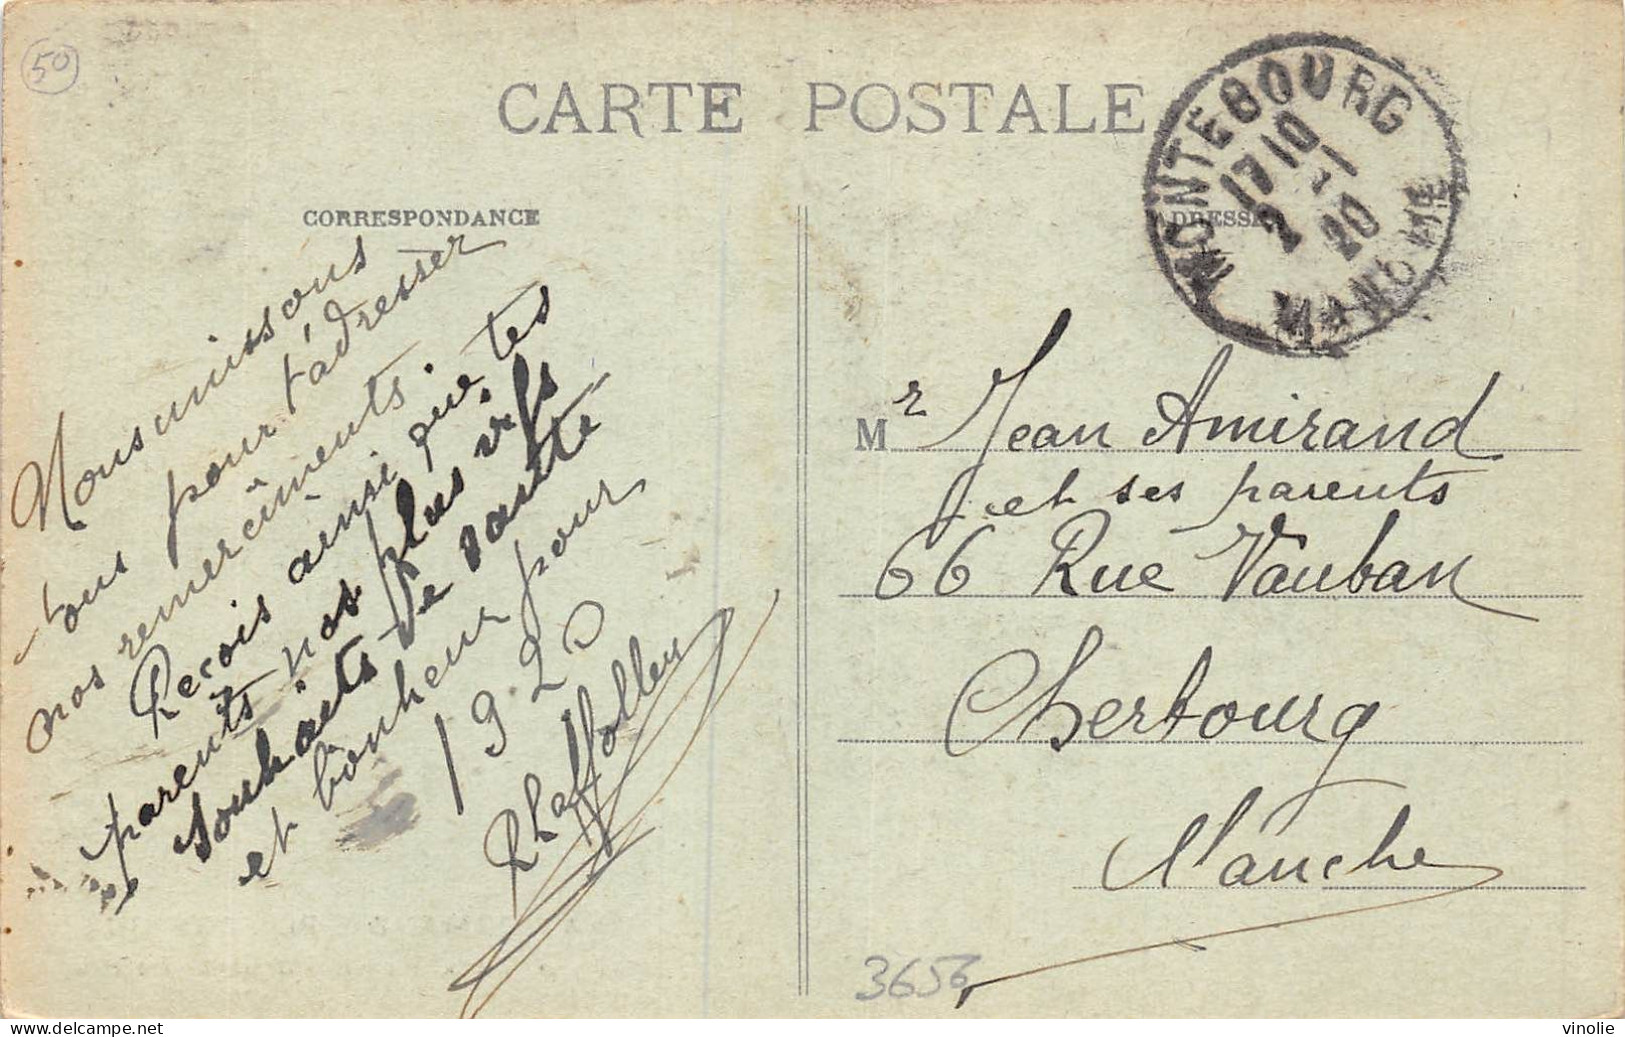 50
CARTE POSTALE
MONTEBOURG
17 10
2 -1
20
MANCHE
CORRESPONDANCE
ADRESSE
Nous unissons
tous pour t'adresser
nos remerciments.
Recois ainsi que tes
parents nos plus vifs
souhaits de santé
et bonheur pour
1920
Mr Jean Amirand
et ses parents
66 Rue Vauban
Cherbourg
Manche
3656
vinolie